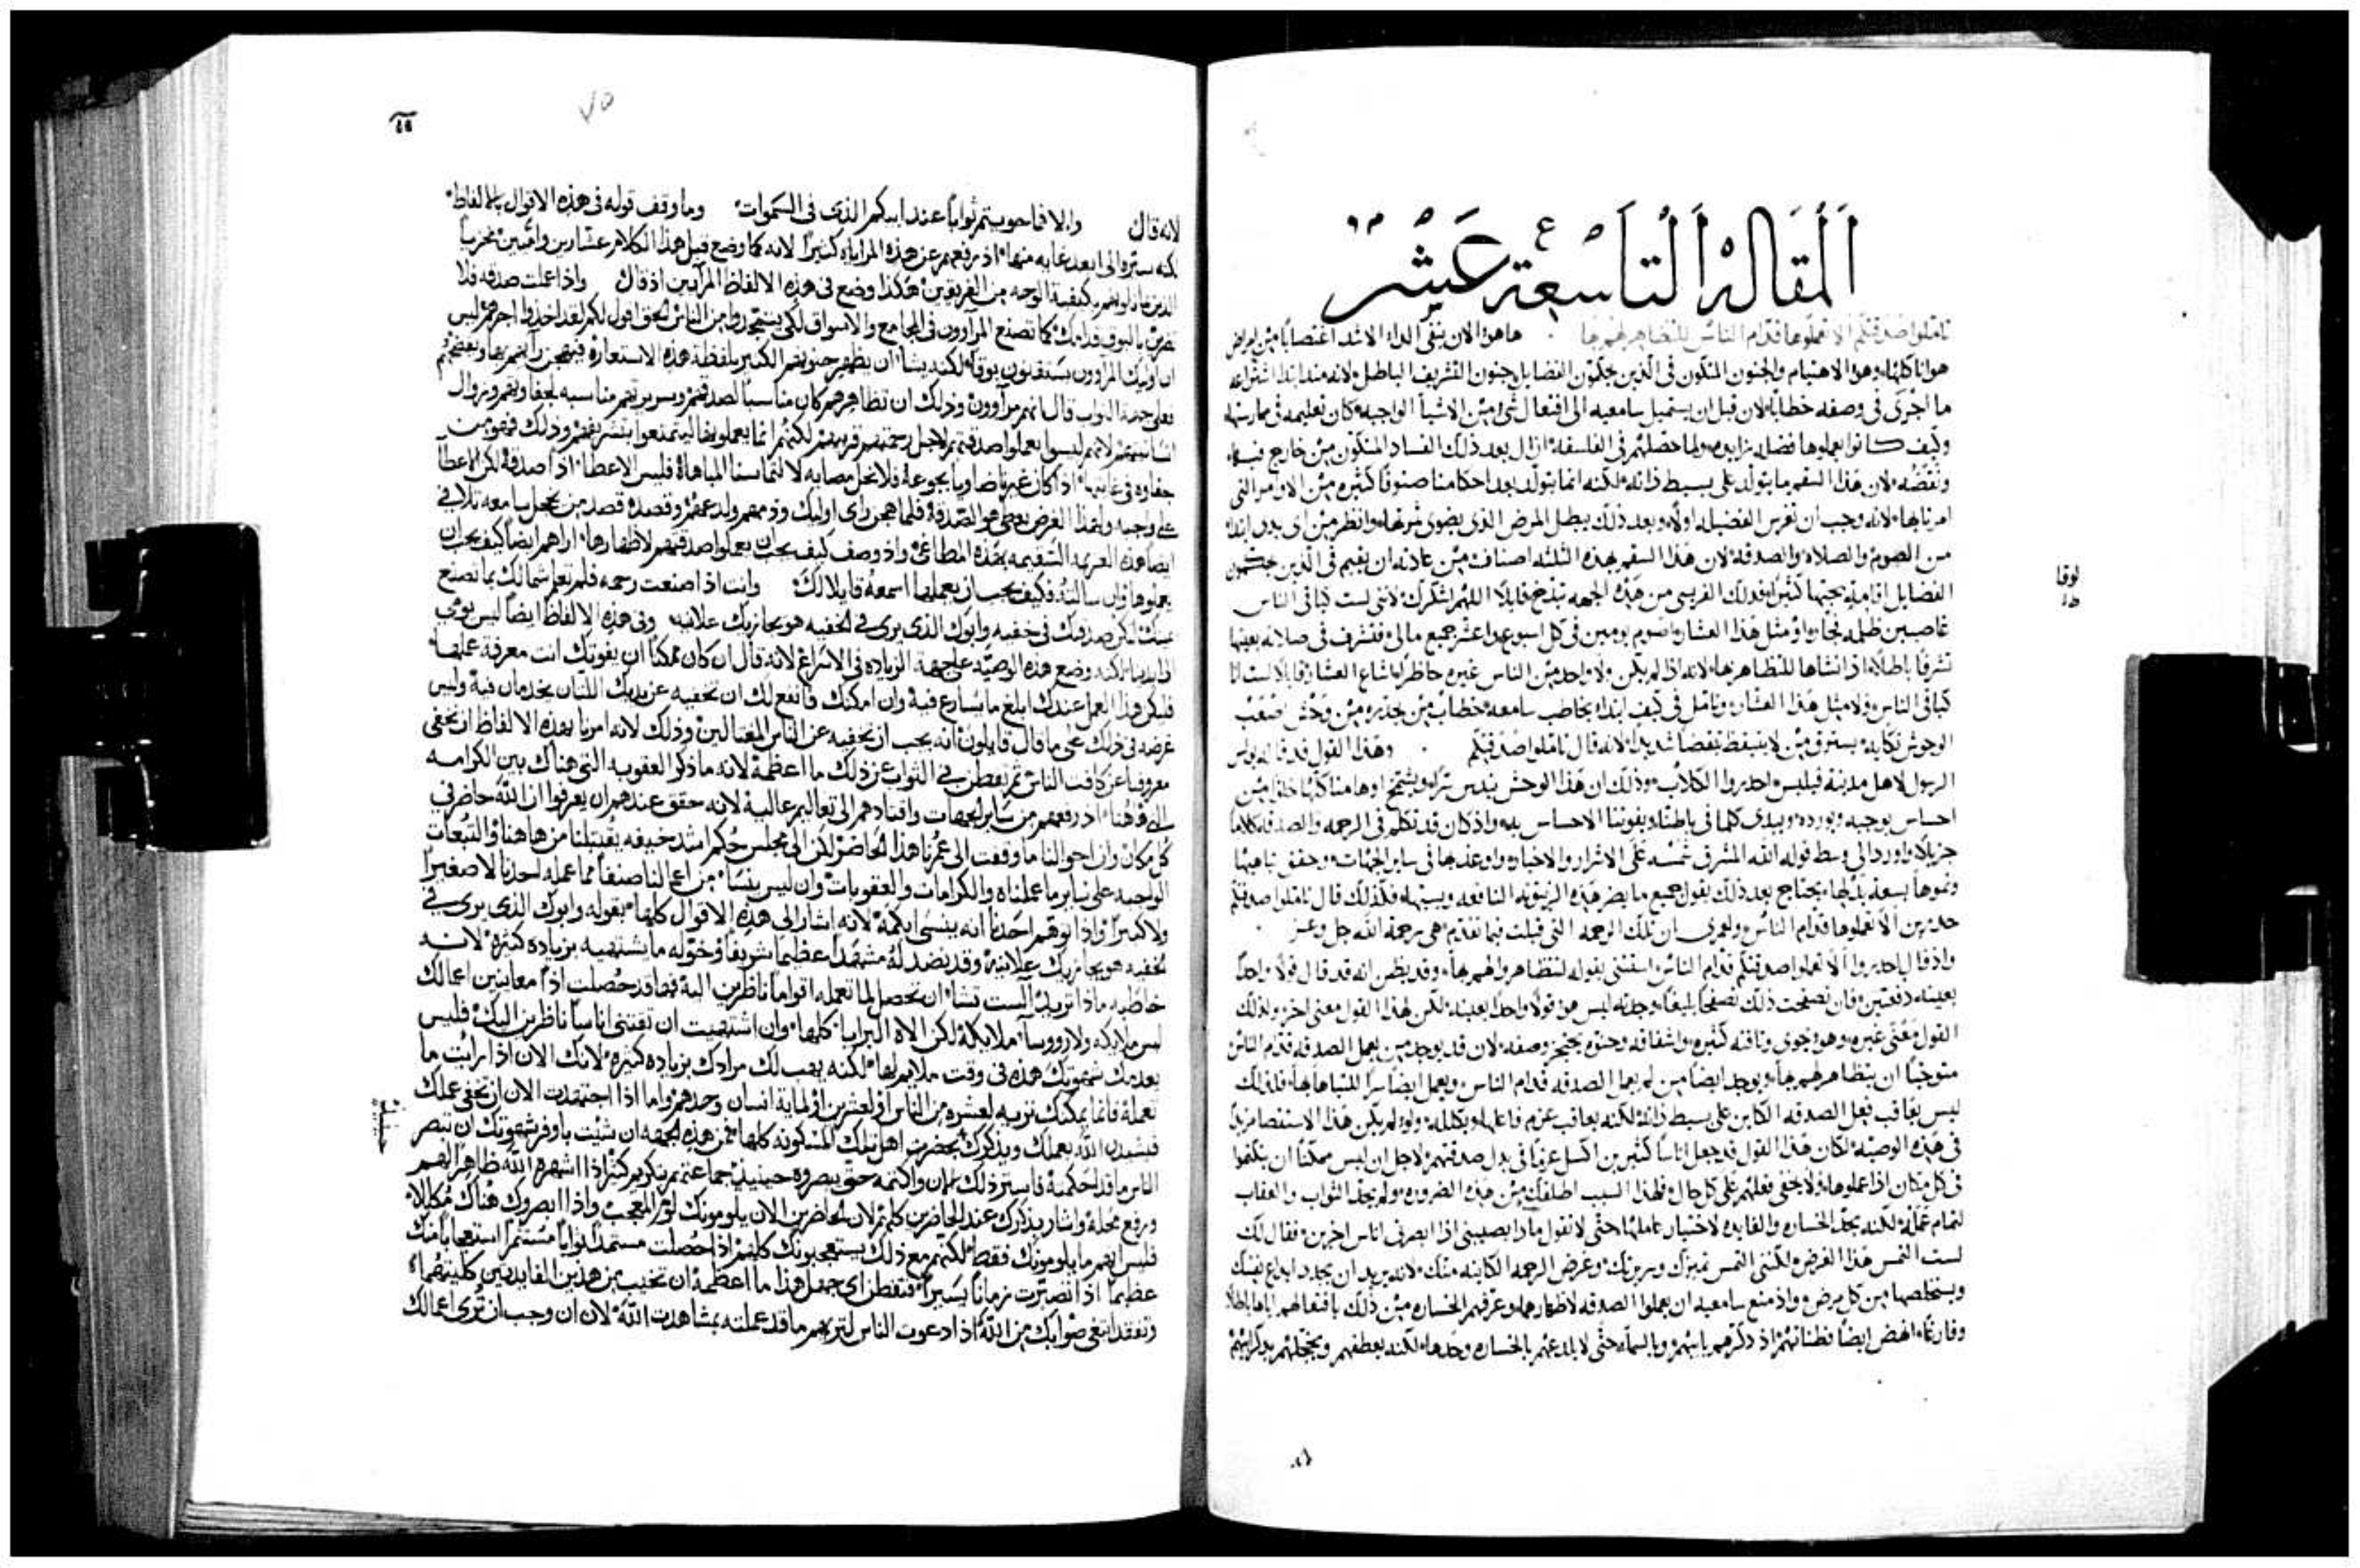 المقاله التاسعة عشر
تاملوا صدقتكم الا تعملوها قدام الناس للتظاهر لهم بها ماهوذا الان ينفي الداء الاشد اغتصابًا من امراض
هوانا كلها وهو الاهتيام والجنون المتكون في الذين يحكمون الفضايل وجنون التشريف الباطل لانه منذ ابتدا اشتراعه
ما اجرى في وصفه خطابًا لان قبل ان يستميل سامعيه الى افتعال شي من الاشيا الواجبه كان تعليمه في ممارستها
وكيف كانوا يعملوها فضله زايده ولما حصلهم في الفلسفه ازال بعد ذلك الفساد المتكون من خارج فيها
ونقضه لان هذا السقم ما يتولد على بسيط ذاته لكنه انما يتولد بعد احكامنا صنوفًا كثيره من الاوامر التي
امرنا بها لانه وجب ان تغرس الفضيله اولًا وبعد ذلك يبطل المرض الذي يضوي ثمرتها وانظر من اي بدو ابتدا
من الصوم والصلاه والصدقه لان هذا السقم بهذه الثلثه اصناف من عادته ان يقيم في الذين يحكمون
الفضايل اقامة يحبها كثيرًا فذلك الفريسي من هذه الجهه تبذخ قايلًا اللهم اشكرك لانني لست كباقي الناس
غاصبين ظلمه فجاره او مثل هذا العشار واصوم يومين في كل اسبوع واعشر جميع مالي فتشرف في صلاته بعينها
تشرفًا باطلًا اذ انشاها للتظاهر بها لانه اذ لم يكن ولا واحد من الناس غيره حاظرًا باشاع العشار قايلًا لست انا
كباقي الناس ولا مثل هذا العشار وتامل في كيف ابتداء يخاطب سامعه خطاب من يحذره من وحش صعب
الوحوش نكايه يسترق من لا يتيقظ تيقضا شديدا لانه قال تاملوا صدقتكم وهذا القول قد قاله بولس
الرسول لاهل مدينة فيلبس واحذروا الكلاب وذلك ان هذا الوحش يندس سرًا وينتفخ اوهامنا كلها خلوا من
احساس بوجيه وبورده ويبدي كلما في باطننا ويفوتنا الاحساس به واذ كان قد تكلم في الرحمه والصدقه كلامًا
جزيلًا واورد الى وسط قوله الله المشرق شمسه على الاشرار والاخيار وارعدها في ساير الجهات وحقق تباهيها
ونموها بسعة بذلها يحتاج بعد ذلك يقول جميع ما يضر هذه الزيتونه النافعه ويستها فلذلك قال تاملوا صدقتكم
حذرين الا تعملوها قدام الناس ولعمري ان تلك الرحمه التي قيلت فيما تقدم هي رحمة الله جل وعز
واذ قال احذروا الا تعملوا صدقتكم قدام الناس استثنى بقوله لتتظاهروا لهم بها وقد يظن انه قد قال قولًا واحدًا
بعينه دفعتين فان تصفحت ذلك تصفحًا بليغًا وجدته ليس هو قولًا واحدًا بعينه لكن لهذا القول معنى اخر ولذلك
القول معنى غيره وهو يحوي وثاقته كثيره واشفاقه وحنوه يحتجز وصفه لان قد يوجد من يعمل الصدقه قدام الناس
متوخيًا ان يتظاهر لهم بها ويوجد ايضًا من لم يعمل الصدقه قدام الناس ويعمل ايضًا سرًا للتباها بها فلذلك
ليس يعاقب فعل الصدقه الكاين على بسيط ذاته لكنه يعاقب عزم فاعلها ويكلله ولو لم يكن هذا الاستقصا مزيدًا
في هذه الوصيه لكان هذا القول قد جعل اناسًا كثيرين اكسل عزمًا في بذل صدقتهم لاجل ان ليس ممكنًا ان ينكتموا
في كل مكان اذا عملوها ولا يخفى فعلهم على كل حال فلهذا السبب اطلقك من هذه الضروره ولم يحد الثواب والعقاب
لتمام عمله لكنه يحد الخساره والفايده لاختيار عاملها حتى لا تقول ماذا يصيبني اذا ابصرني اناس اخرين فقال لك
لست التمس هذا الغرض لكنني التمس تميزك وسريرتك وغرض الرحمه الكاينه منك لانه يريد ان يجدد ابداع نفسك
ويستخلصها من كل مرض واذ منع سامعيه ان يعملوا الصدقه لاظهارها وعرفهم الخساره من ذلك بافتعالهم اياها باطلًا
وفارغًا انهض ايضًا فطناتهم اذ ذكرهم بابيهم وبالسماء حتى لا يلدعهم بالخساره وحدها لكنه يعطفهم ويخجلهم بذكر ابيهم
لوقا
١٨
٧٥
لانه قال والا فما حويتم ثوابًا عند ابيكم الذي في السموات وما وقف قوله في هذه الاقوال بالالفاظ
لكنه ستره الى ابعد غايه منها اذ رفعهم عن هذه المراياه كثيرًا لانه كما وضع قبل هذا الكلام عشارين واممين مخزيًا
الذين ماثلوهم بكيفية الوجه من الفريقين هكذا وضع في هذه الالفاظ المرآيين اذ قال واذا عملت صدقه فلا
تضرب بالبوق قدامك كما تصنع المرآوون في المجامع والاسواق لكي يتمجدوا من الناس الحق اقول لكم لقد اخذوا اجرهم ليس
ان اوليك المرآوون يستقنون بوقًا لكنه يشأ ان يظهر جنونهم الكثير بلفظة هذه الاستعاره فيهجن رآيهم بها ويفضحهم
فعلى جهة الصواب قال انهم مرآوون وذلك ان تظاهرهم كان مناسبًا لصدقتهم وسريرتهم مناسبه لجفاوتهم وزوال
انسانيتهم لانهم ليسوا يعملوا صدقتهم لاجل رحمتهم قريبهم لكنهم انما يعملونها ليتمتعوا بتشريفهم وذلك فهو من
جفاوه في غايتها اذ كان غيرنا ضاويًا بجوعه فلا نحل مصابه لالتماسنا المباهاة فليس الاعطا اذًا صدقة لكن الاعطآ
على واجبه ولهذا الغرض يعطى هو الصدقة فلما هجن راي اوليك وذمهم ولدعهم وقصده قصد من يخجل سامعه تلافى
ايضا هذه العزيمه السقيمه بهذه المطاعن واذ وصف كيف يجب ان يعملوا صدقتهم لاظهارها اراهم ايضًا كيف يجب ان
يعملوها وان سالته فكيف يجب ان نعملها اسمعه قايلا لك وانت اذا صنعت رحمه فلا تعلم شمالك بما تصنع
يمينك لتكن صدقتك في خفيه وابوك الذي يرى في الخفيه هو يجازيك علانيه وفي هذه الالفاظ ايضًا ليس يومي
الى ايدينا لكنه وضع هذه الوصيه على جهة الزياده في الاسراع لانه قال ان كان ممكنًا ان يفوتك انت معرفة عملها
فليكن هذا العمل عندك ابلغ ما يسارع فيه وان امكنك فانفع لك ان تخفيه عن يديك اللتان يخدمان فيه وليس
غرضه في ذلك على ما قال قايلون انه يجب ان نخفيه عن الناس المغتالين وذلك لانه امرنا بهذه الالفاظ ان نخفي
معروفنا عن كافت الناس ثم تفطن في الثواب عن ذلك ما اعظمه لانه ما ذكر العقوبه التي هناك بين الكرامه
التي هاهنا اذ رفعهم من ساير الجهات واقتادهم الى تعاليم عالية لانه حقق عندهم ان يعرفوا ان الله حاضر في
كل مكان وان احوالنا ما وقفت الى عمرنا هذا الحاضر لكن الى مجلس حكم اشد خيفه يقتبلنا من هاهنا والتبعات
الواجبه على ساير ما عملناه والكرامات والعقوبات وان ليس ينسا من اعمالنا صنفًا مما عمله احدنا لا صغيرًا
ولا كبيرًا واذا توهم احدنا انه ينسى ايكمه لانه اشار الى هذه الاقوال كلها بقوله وابوك الذي يرى في
الخفيه هو يجازيك علانية وقد نضد له مشهدًا عظيمًا شريفًا وخوله ما يشتهيه بزياده كثيره لانه
خاطبه ماذا تريد الست تشا ان تحصل لما تعمله اقوامًا ناظرين اليه فها قد حصلت اذًا معاينين اعمالك
ليس ملايكه ولا رووسآ ملايكة لكن الاه البرايا كلها وان اشتهيت ان تقتني اناسًا ناظرين اليك فليس
يعدمك شهوتك هذه في وقت ملايم لها لكنه يهب لك مرادك بزياده كثيره لانك الان اذا رايت ما
تعمله فانما يمكنك تريه لعشره من الناس او لعشرين او لماية انسان وحدهم واما اذا اجتهدت الان ان تخفي عملك
فيشيدن الله بعملك ويذكرك بحضرت اهل تلك المسكونه كلها فمن هذه الجهه ان شيت باوفر شهوتك ان تبصر
الناس ما قد احكمته فاستر ذلك الان واكتمه حتى يبصروه حينيذ جماعتهم بتكريم كثير اذا اشهره الله ظاهرًا لهم
ورفع محله واشار بذكرك عند الحاضرين كلهم لان الحاضرين الان يلومونك لوم المعجب واذا ابصروك هناك مكللًا
فليس انهم ما يلومونك فقط لكنهم مع ذلك يستعجبونك كلهم اذا حصلت مستمدًا ثوابًا مستثمرًا استعجابًا منك
عظيمًا اذا تصبرت زمانًا يسيرًا فتفطن اي جهل هذا ما اعظمه ان تخيب من هذين الفايدتين كلتيهما
وتفقد ابتغى ثوابك من الله اذا دعوت الناس لتريهم ما قد عملته بمشاهدت الله لان ان وجب ان تُرى اعمالك